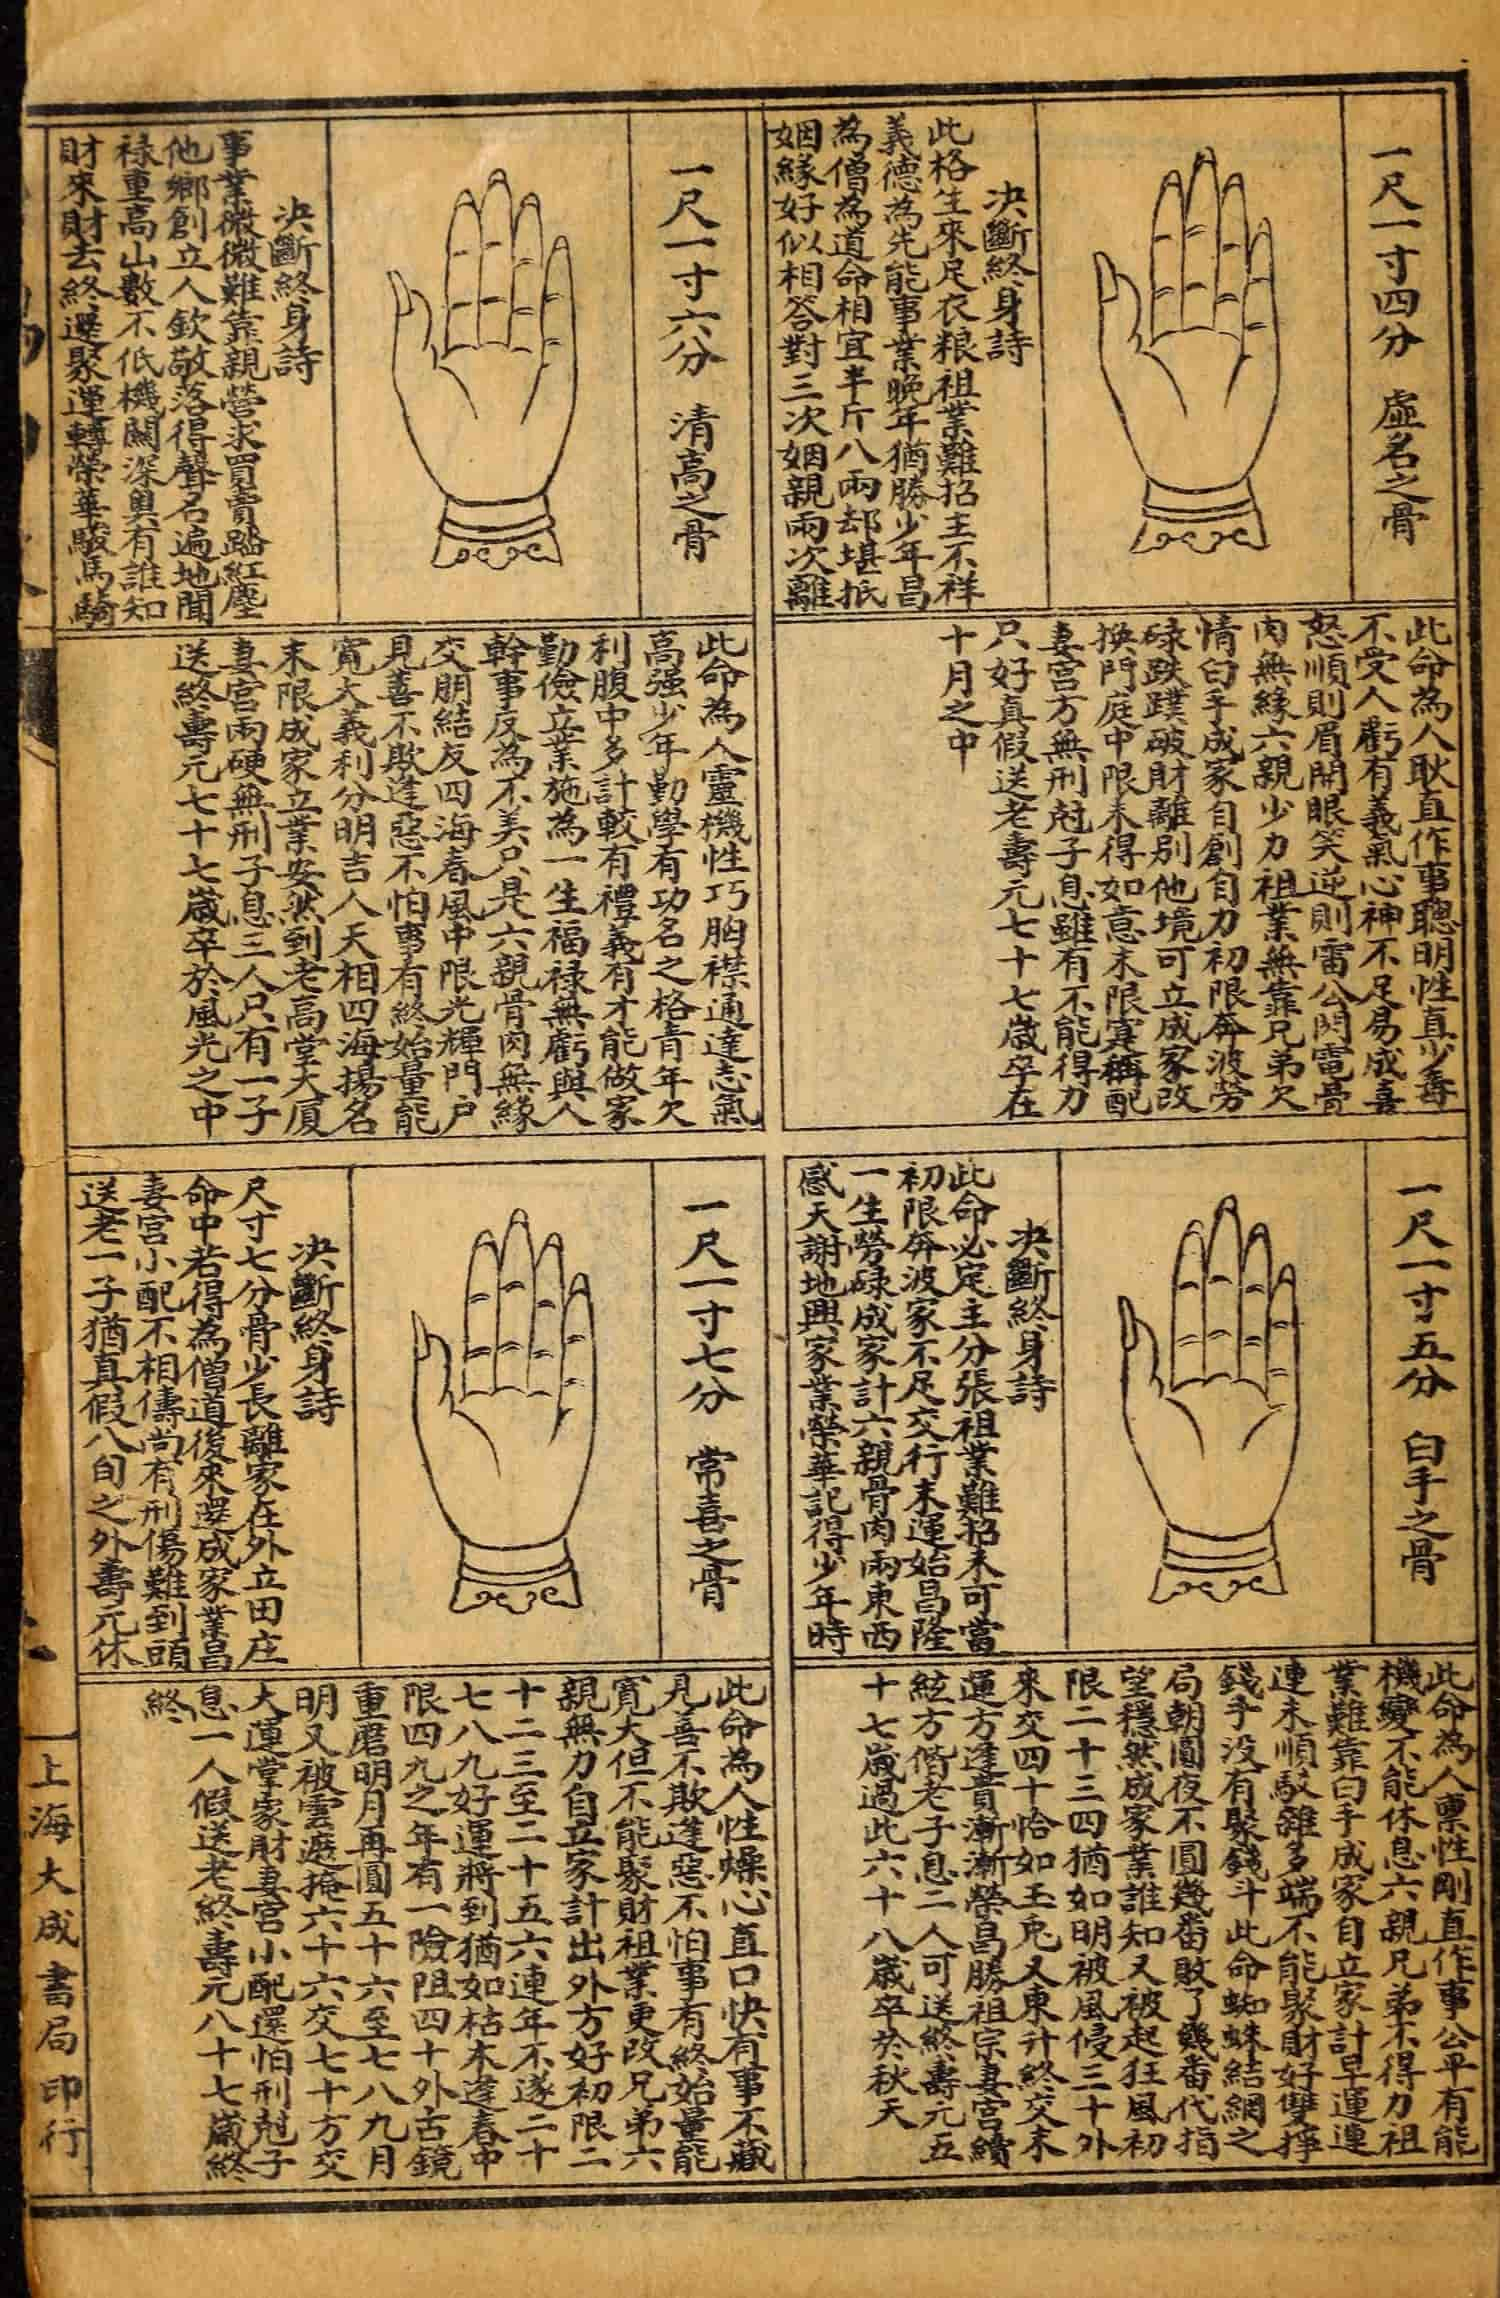 一尺一寸四分　虛名之骨
決斷終身詩
此格生來足衣粮祖業難招主不祥
義德為先能事業晚年猶勝少年昌
為僧為道命相宜半斤八兩却堪抵
姻緣好似相答對三次姻親兩次離
此命為人耿直作事聰明性真少毒
不受人虧有義氣心神不足易成喜
怒順則眉開眼笑逆則雷公閃電骨
肉無緣六親少力祖業無靠兄弟欠
情白手成家自創自力初限奔波勞
碌跌蹼破財離別他境可立成家改
換門庭中限未得如意末限寔稱配
妻宮方無刑尅子息雖有不能得力
只好真假送老壽元七十七歲卒在
十月之中
一尺一寸五分　白手之骨
決斷終身詩
此命必定主分張祖業難招未可當
初限奔波家不足交行末運始昌隆
一生勞碌成家計六親骨肉兩東西
感天謝地興家業榮華記得少年時
此命為人禀性剛直作事公平有能
機變不能休息六親兄弟不得力祖
業難靠白手成家自立家計早運運
連未順駁雜多端不能聚財好雙掙
錢手没有聚錢斗此命蜘蛛結網之
局朝圓夜不圓幾番敗了幾番代指
望穩然成家業誰知又被起狂風初
限二十三四猶如明被風侵三十外
來交四十恰如玉兎又東升終交末
運方逢貴漸漸榮昌勝祖宗妻宮續
絃方偕老子息二人可送終壽元五
十七歲過此六十八歲卒於秋天
一尺一寸六分　清高之骨
決斷終身詩
事業微微難靠親營求買賣踏紅塵
他鄉創立人欽敬落得聲名遍地聞
禄重高山數不低機關深奥有誰知
財來財去終還聚運轉榮華駿馬騎
此命為人靈機性巧胸襟通達志氣
高强少年勤學有功名之格青年欠
利腹中多計較有禮義有才能做家
勤儉立業施為一生福禄無虧與人
幹事反為不美只是六親骨肉無緣
交朋結友四海春風中限光輝門户
見善不欺逢惡不怕事有終始量能
寬大義利分明吉人天相四海揚名
末限成家立業安然到老高堂大厦
妻宮兩硬無刑子息三人只有一子
送終壽元七十七歲卒於風光之中
一尺一寸七分　常喜之骨
決斷終身詩
尺寸七分骨少長離家在外立田庄
命中若得為僧道後來還成家業昌
妻宮小配不相儔尚有刑傷難到頭
送老一子猶真假八旬之外壽元休
此命為人性燥心直口快有事不藏
見善不欺逢惡不怕事有終始量能
寬大但不能聚財祖業更改兄弟六
親無力自立家計出外方好初限二
十二三至二十五六連年不遂二十
七八九好運將到猶如枯木逢春中
限四九之年有一險阻四十外古鏡
重磨明月再圓五十六至七八九月
明又被雲遮掩六十六交七十方交
大運掌家財妻宮小配還怕刑尅子
息一人假送老終壽元八十七歲終
終
上海大成書局印行